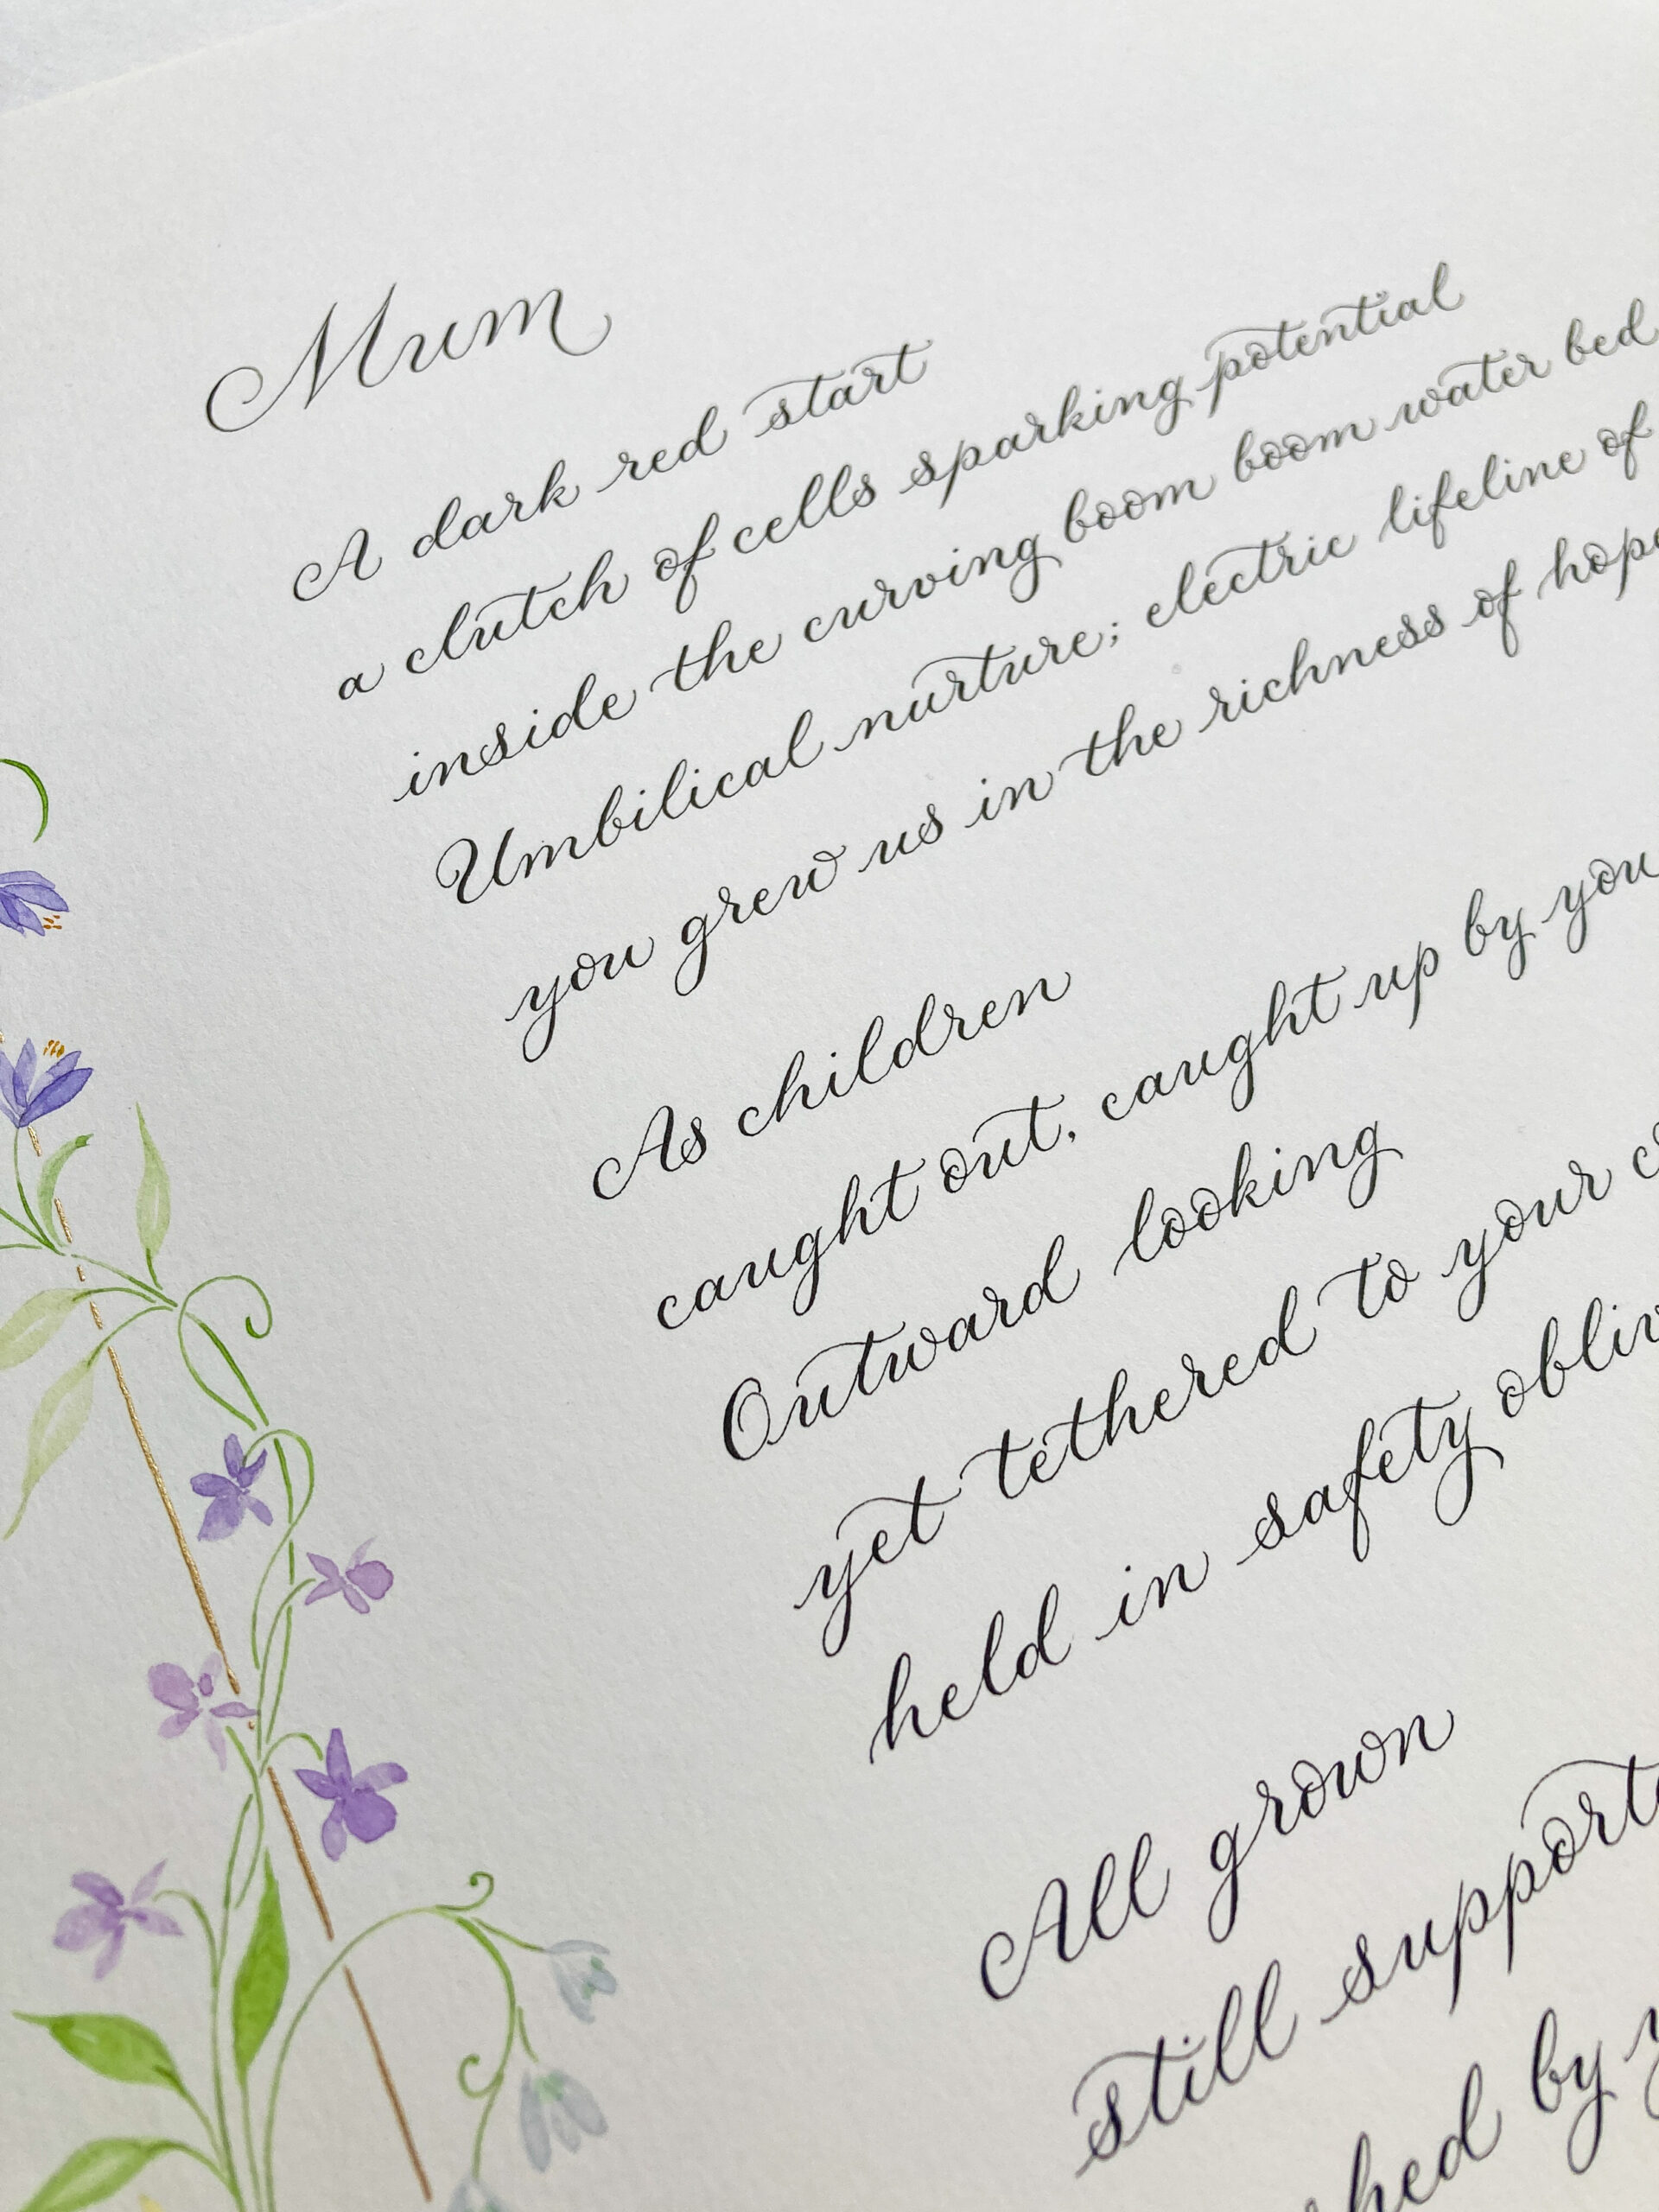 Mum
A dark red start
a clutch of cells sparking potential
inside the curving boom boom water bed
Umbilical nurture; electric lifeline of
you grew us in the richness of hope
As children
caught out, caught up by you
Outward looking
yet tethered to your
held in safety
All grown
still
by